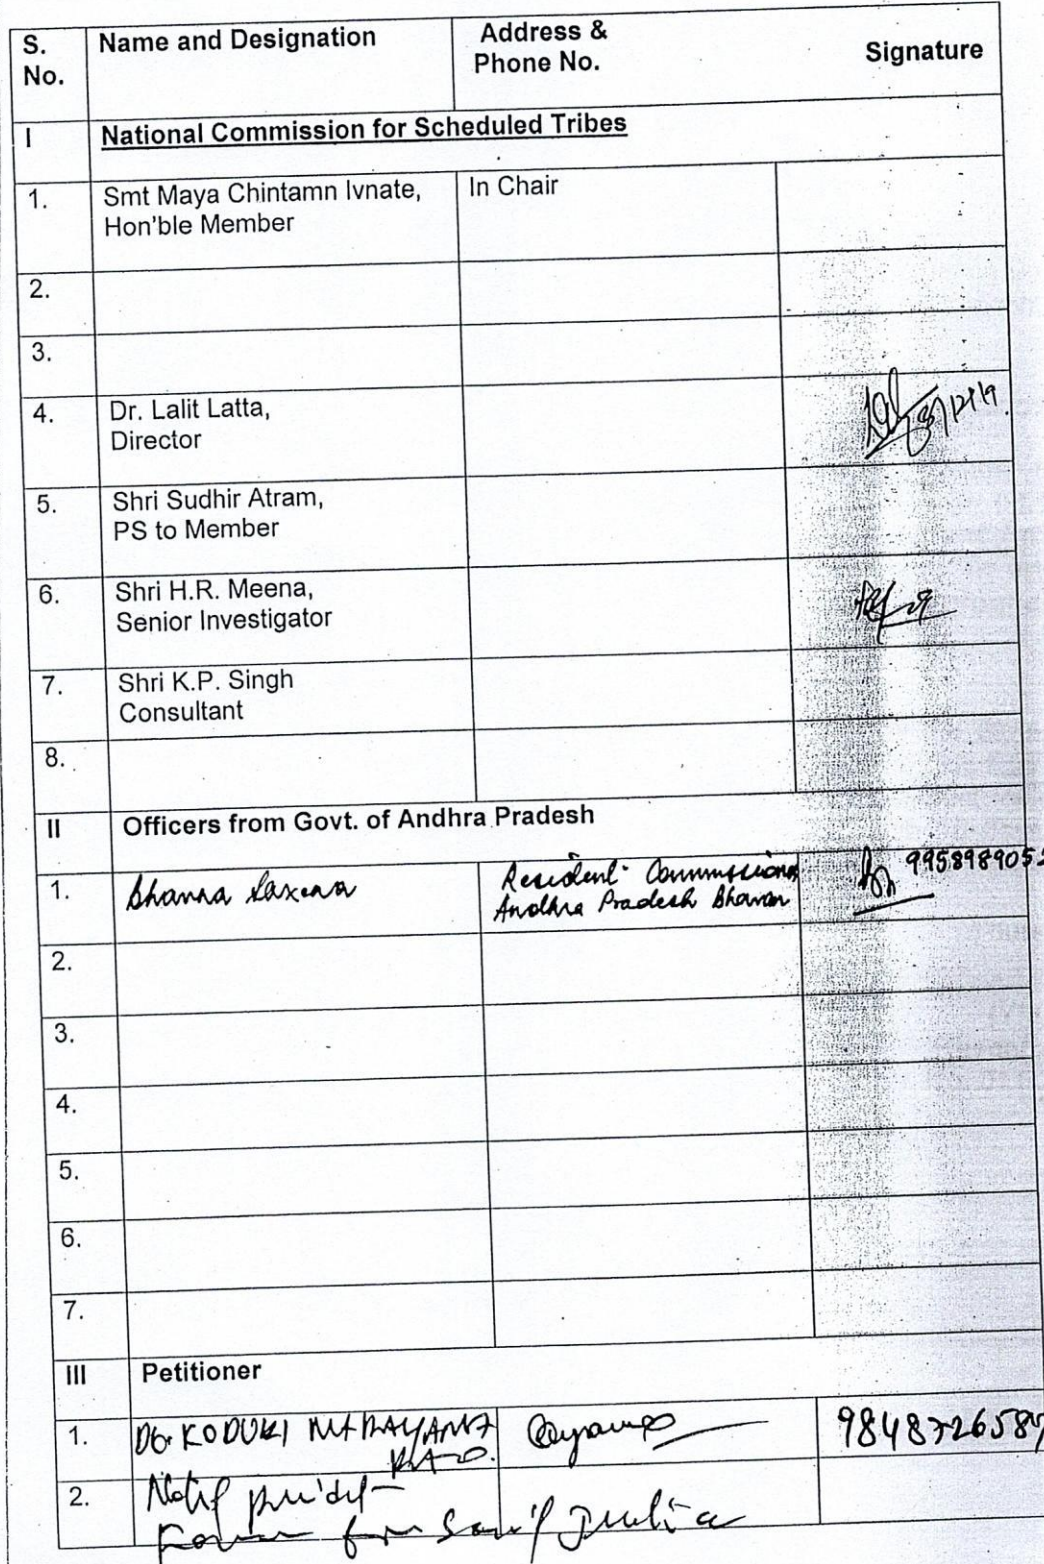 S. No.
Name and Designation
Address & Phone No.
Signature
I
National Commission for Scheduled Tribes
1.
Smt Maya Chintamn Ivnate,
Hon'ble Member
In Chair
2.
3.
4.
Dr. Lalit Latta,
Director
5.
Shri Sudhir Atram,
PS to Member
6.
Shri H.R. Meena,
Senior Investigator
7.
Shri K.P. Singh
Consultant
8.
II
Officers from Govt. of Andhra Pradesh
1.
Bhavna Saxena
Resident Commissioner
Andhra Pradesh Bhavan
995898905
2.
3.
4.
5.
6.
7.
III
Petitioner
1.
KODUKI NARAYANA
RAO.
2.
Forum for